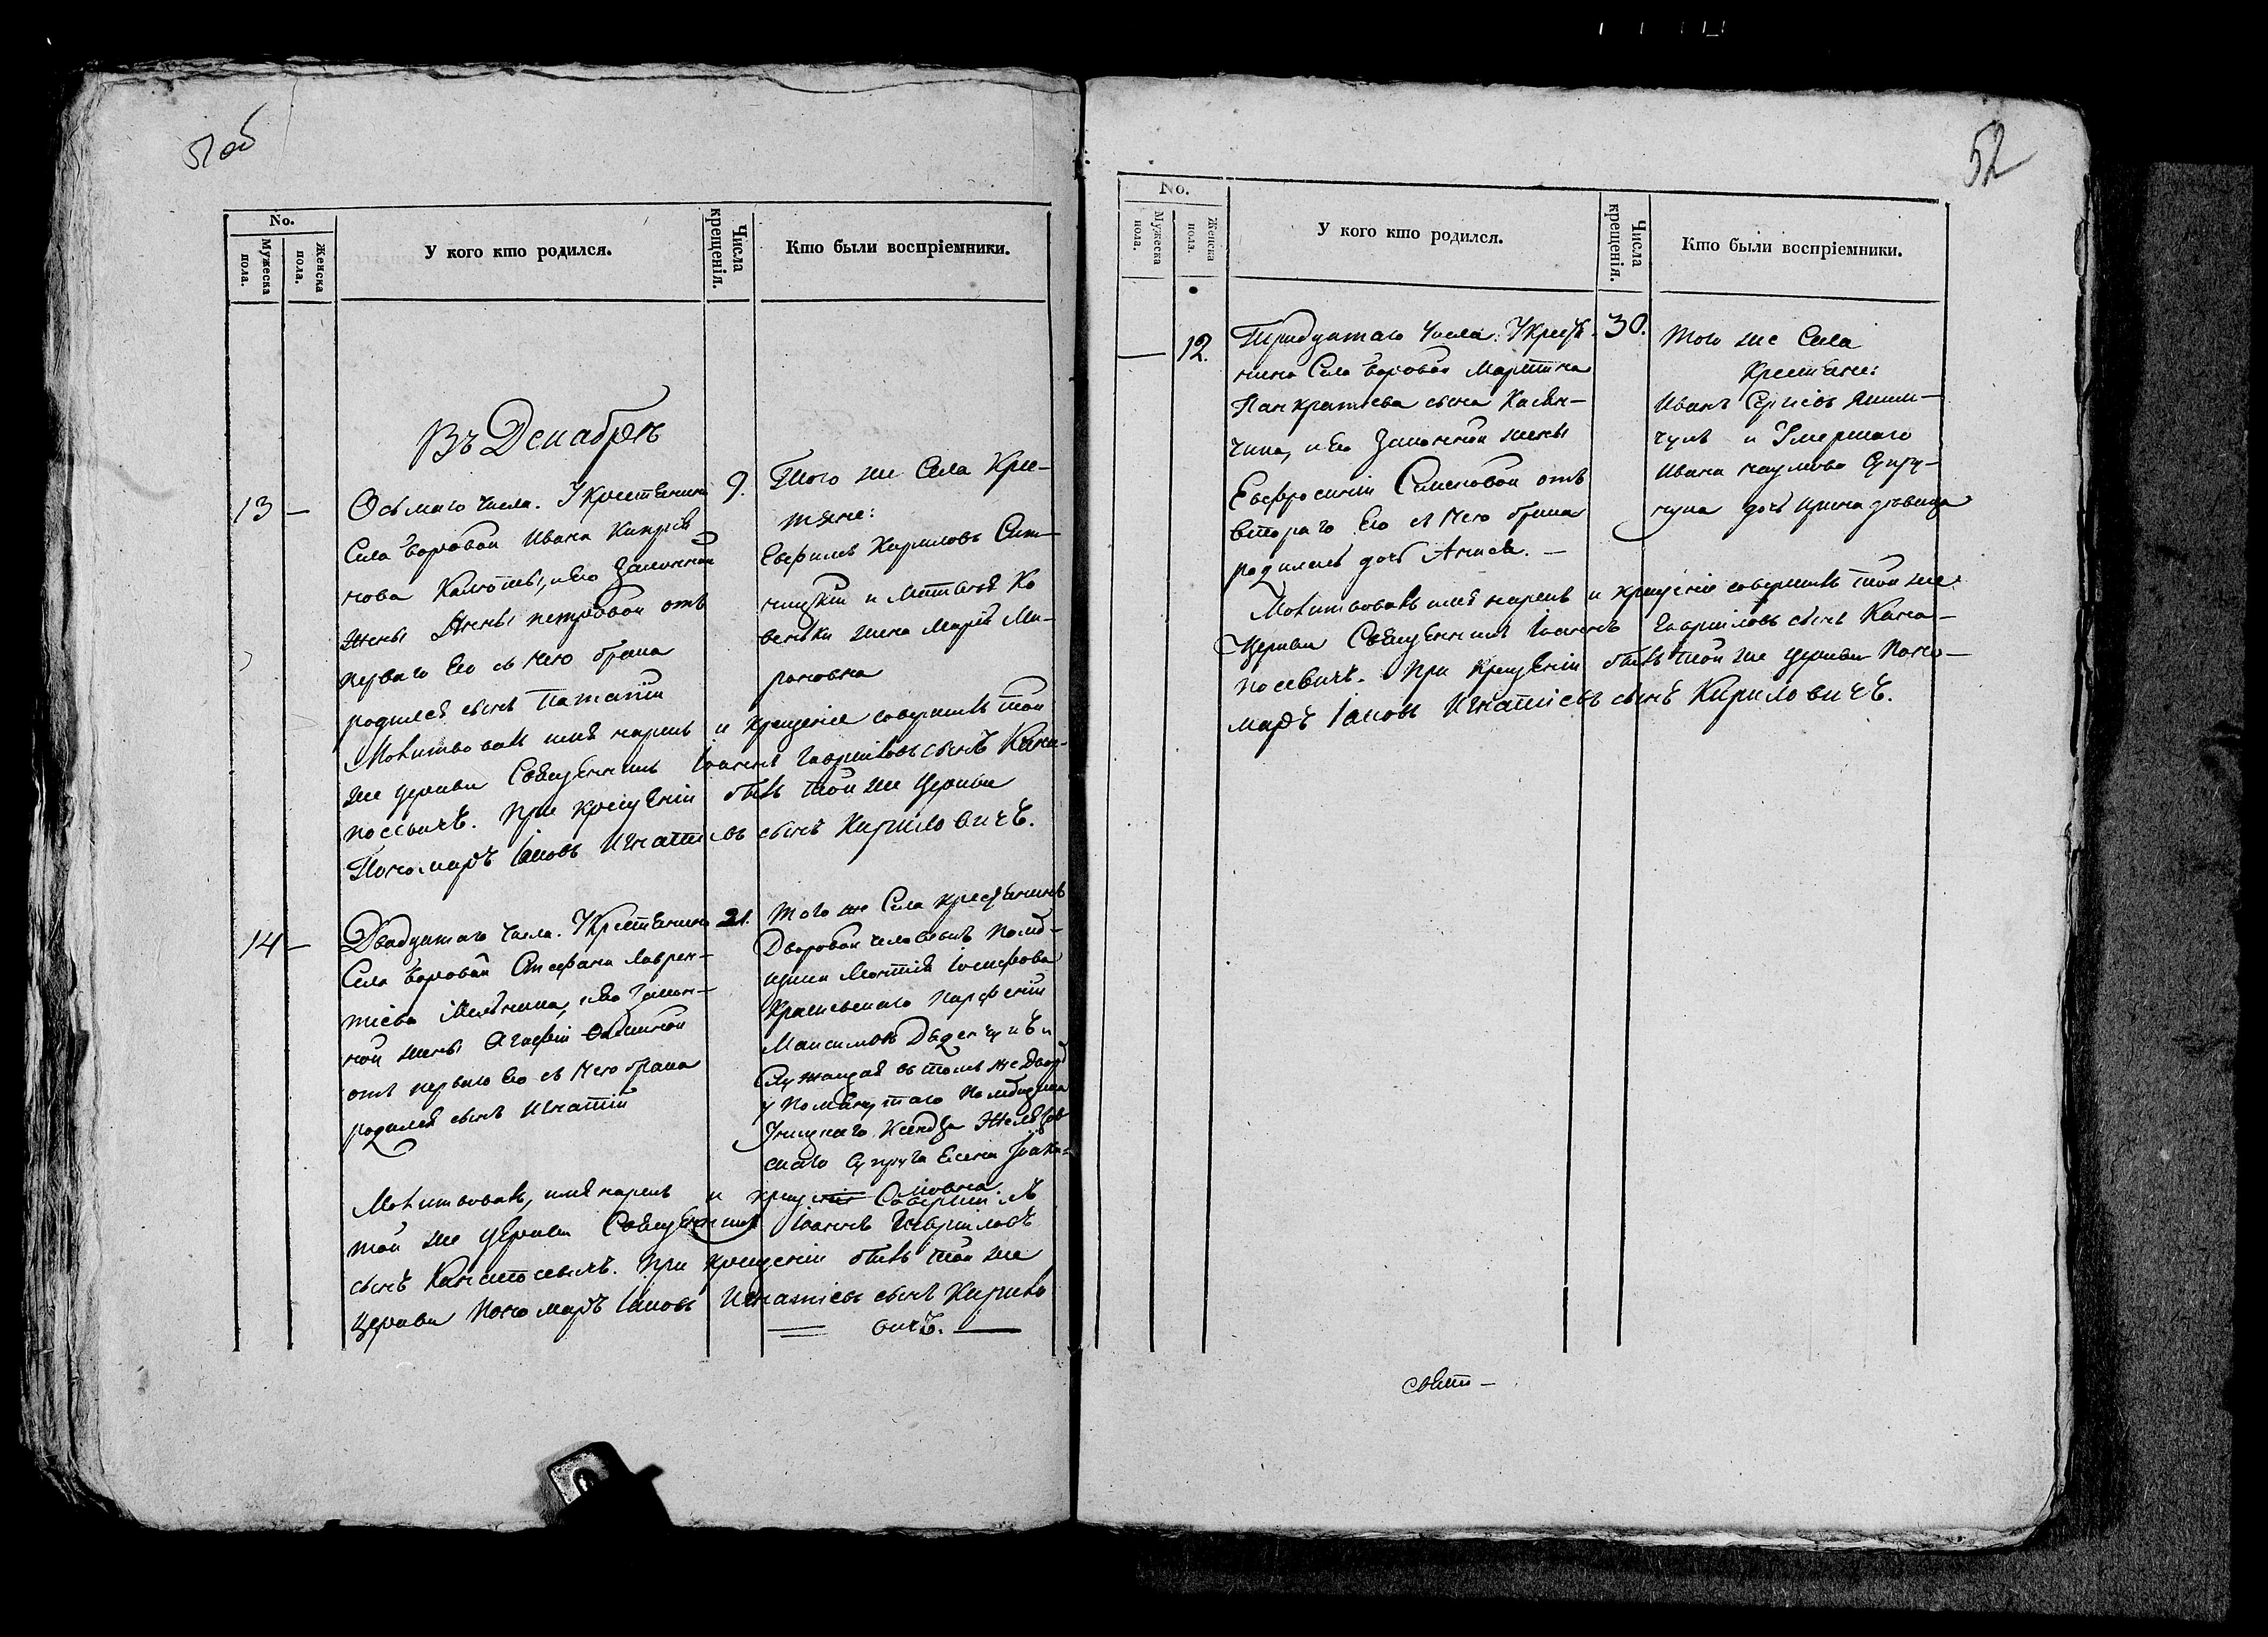 51 об
No.
Мужеска пола.
Женска пола.
У кого кто родился.
Числа крещенія.
Кто были воспріемники.
Въ Декабрѣ
13 —
Осьмаго числа. У крестьянина
Села Боровой Ивана
его законной
жены Анны Петровой отъ
перваго его съ нею брака
родился сынъ Потапій
9.
Того же Села Кре-
стяне:
Евфимъ Кириловъ
и Ко
веньки жена Марія Ми-
роновна
Молитвовалъ имя нарекъ и крещеніе совершилъ той
же церкви Священникъ Іоаннъ Гавріиловъ сынъ Кана-
посевичъ. При крещеніи былъ той же Церкви
Пономаръ Іаковъ Игнатіевъ сынъ Кириловичъ.
14 —
Двадцатаго числа. У Крестьянина
Села Боровой Стефана Лаврен-
тіева Мельника, и его закон-
ной жены Агафіи
отъ перваго его съ нею брака
родился сынъ Игнатій
21.
того же Села крестьянинъ
Дворовой человѣкъ помѣ-
щика Іосифова
Парфеній
Максимовъ и
Служащая въ томъ же Дворѣ
у помянутаго помѣщика
Уніцкаго Ксендза
скаго супруга Елена Іоаки-
мовна
Молитвовалъ, имя нарекъ и крещеніе Совершилъ
той же Церкви Священникъ Іоаннъ Гавріиловъ
сынъ Канапосевичъ. При крещеніи былъ той же
Церкви Пономаръ Іаковъ Игнатіевъ сынъ Кирило
вичъ.
52
No.
Мужеска пола.
Женска пола.
У кого кто родился.
Числа крещенія.
Кто были воспріемники.
— 12.
Тридцатаго числа. У крестья-
нина Села Боровой Мартина
Панкратіева сына Касян-
чика, и его Законной жены
Евфросиніи Симеоновой отъ
втораго его съ нею брака
родилась дочь Анисія. —
30.
того же Села
Крестьяне:
Иванъ Сергіевъ
и Умершаго
Ивана Наумова
дочь Ирина дѣвица
Молитвовалъ имя нарекъ и крещеніе совершилъ той же
Церкви Священникъ Іоаннъ Гавріиловъ сынъ Кана-
посевичъ. При крещеніи былъ той же церкви Поно-
маръ Іаковъ Игнатіевъ сынъ Кириловичъ.